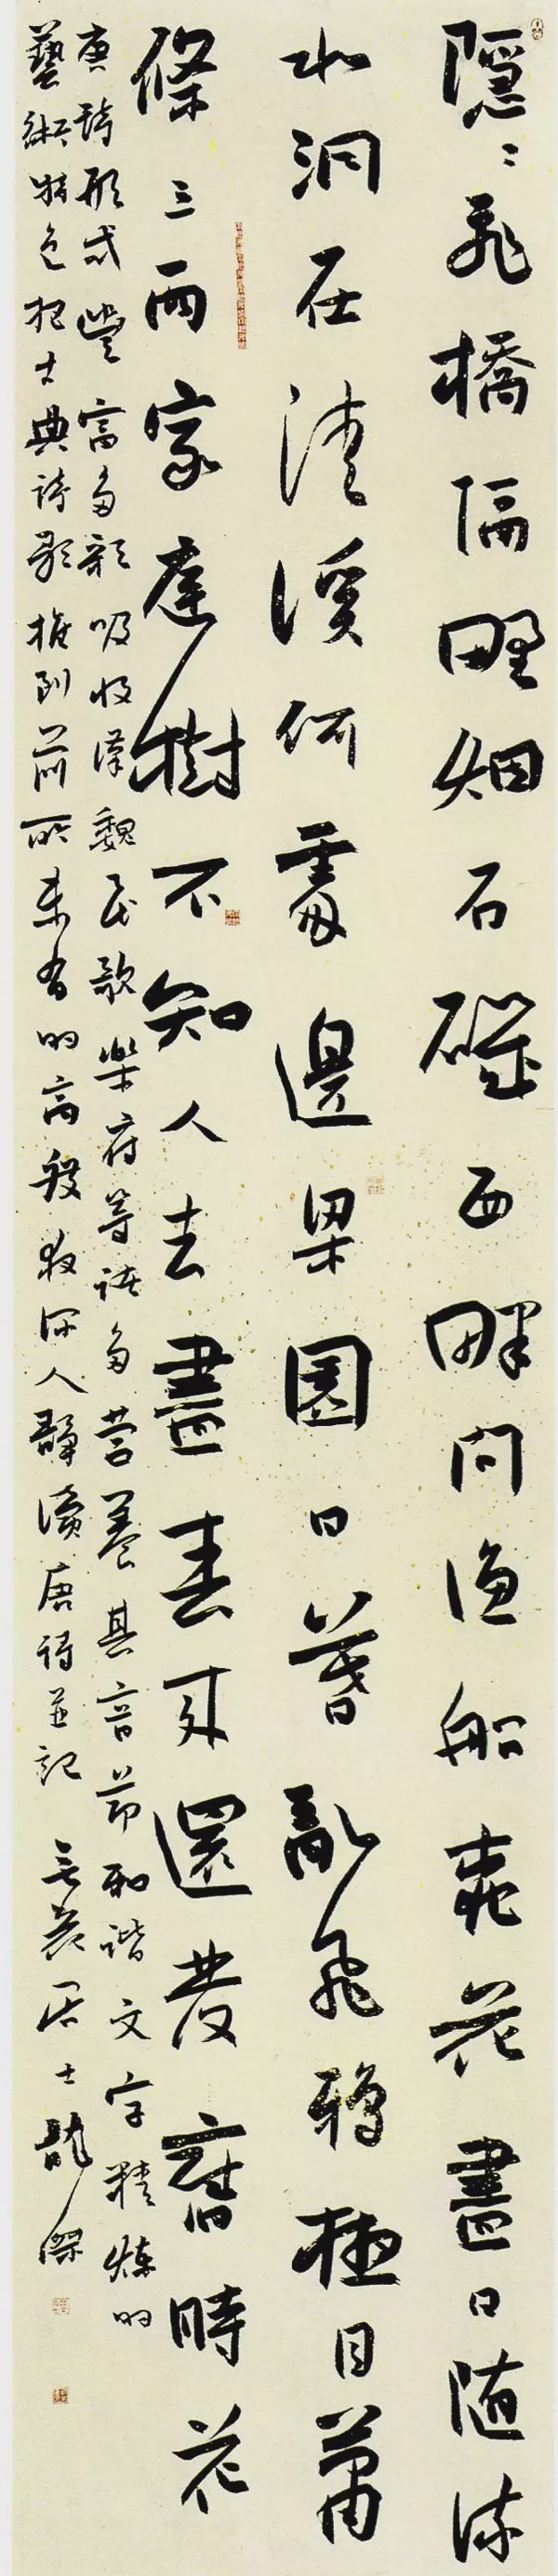 隱〻飛橋隔野烟石磯西畔問漁船桃花盡日隨流
水洞在清溪何處邊梁園日暮亂飛鴉極目蕭
條三兩家庭樹不知人去盡春來還發舊時花
唐詩形式豐富多彩吸收漢魏民歌樂府等諸多營養其音節和谐文字精煉的
藝術特色把古典詩歌推到前所未有的高發夜深人靜讀唐詩並記 居士